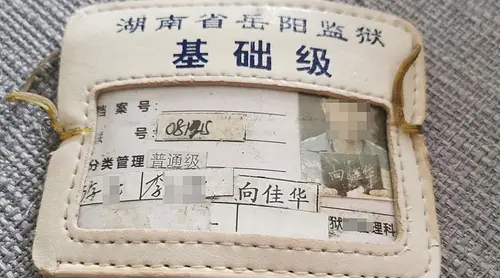 湖南省岳阳监狱
基础级
档案号:
号: 08125
分类管理 普通级
李 向佳华
向佳华
狱 理科